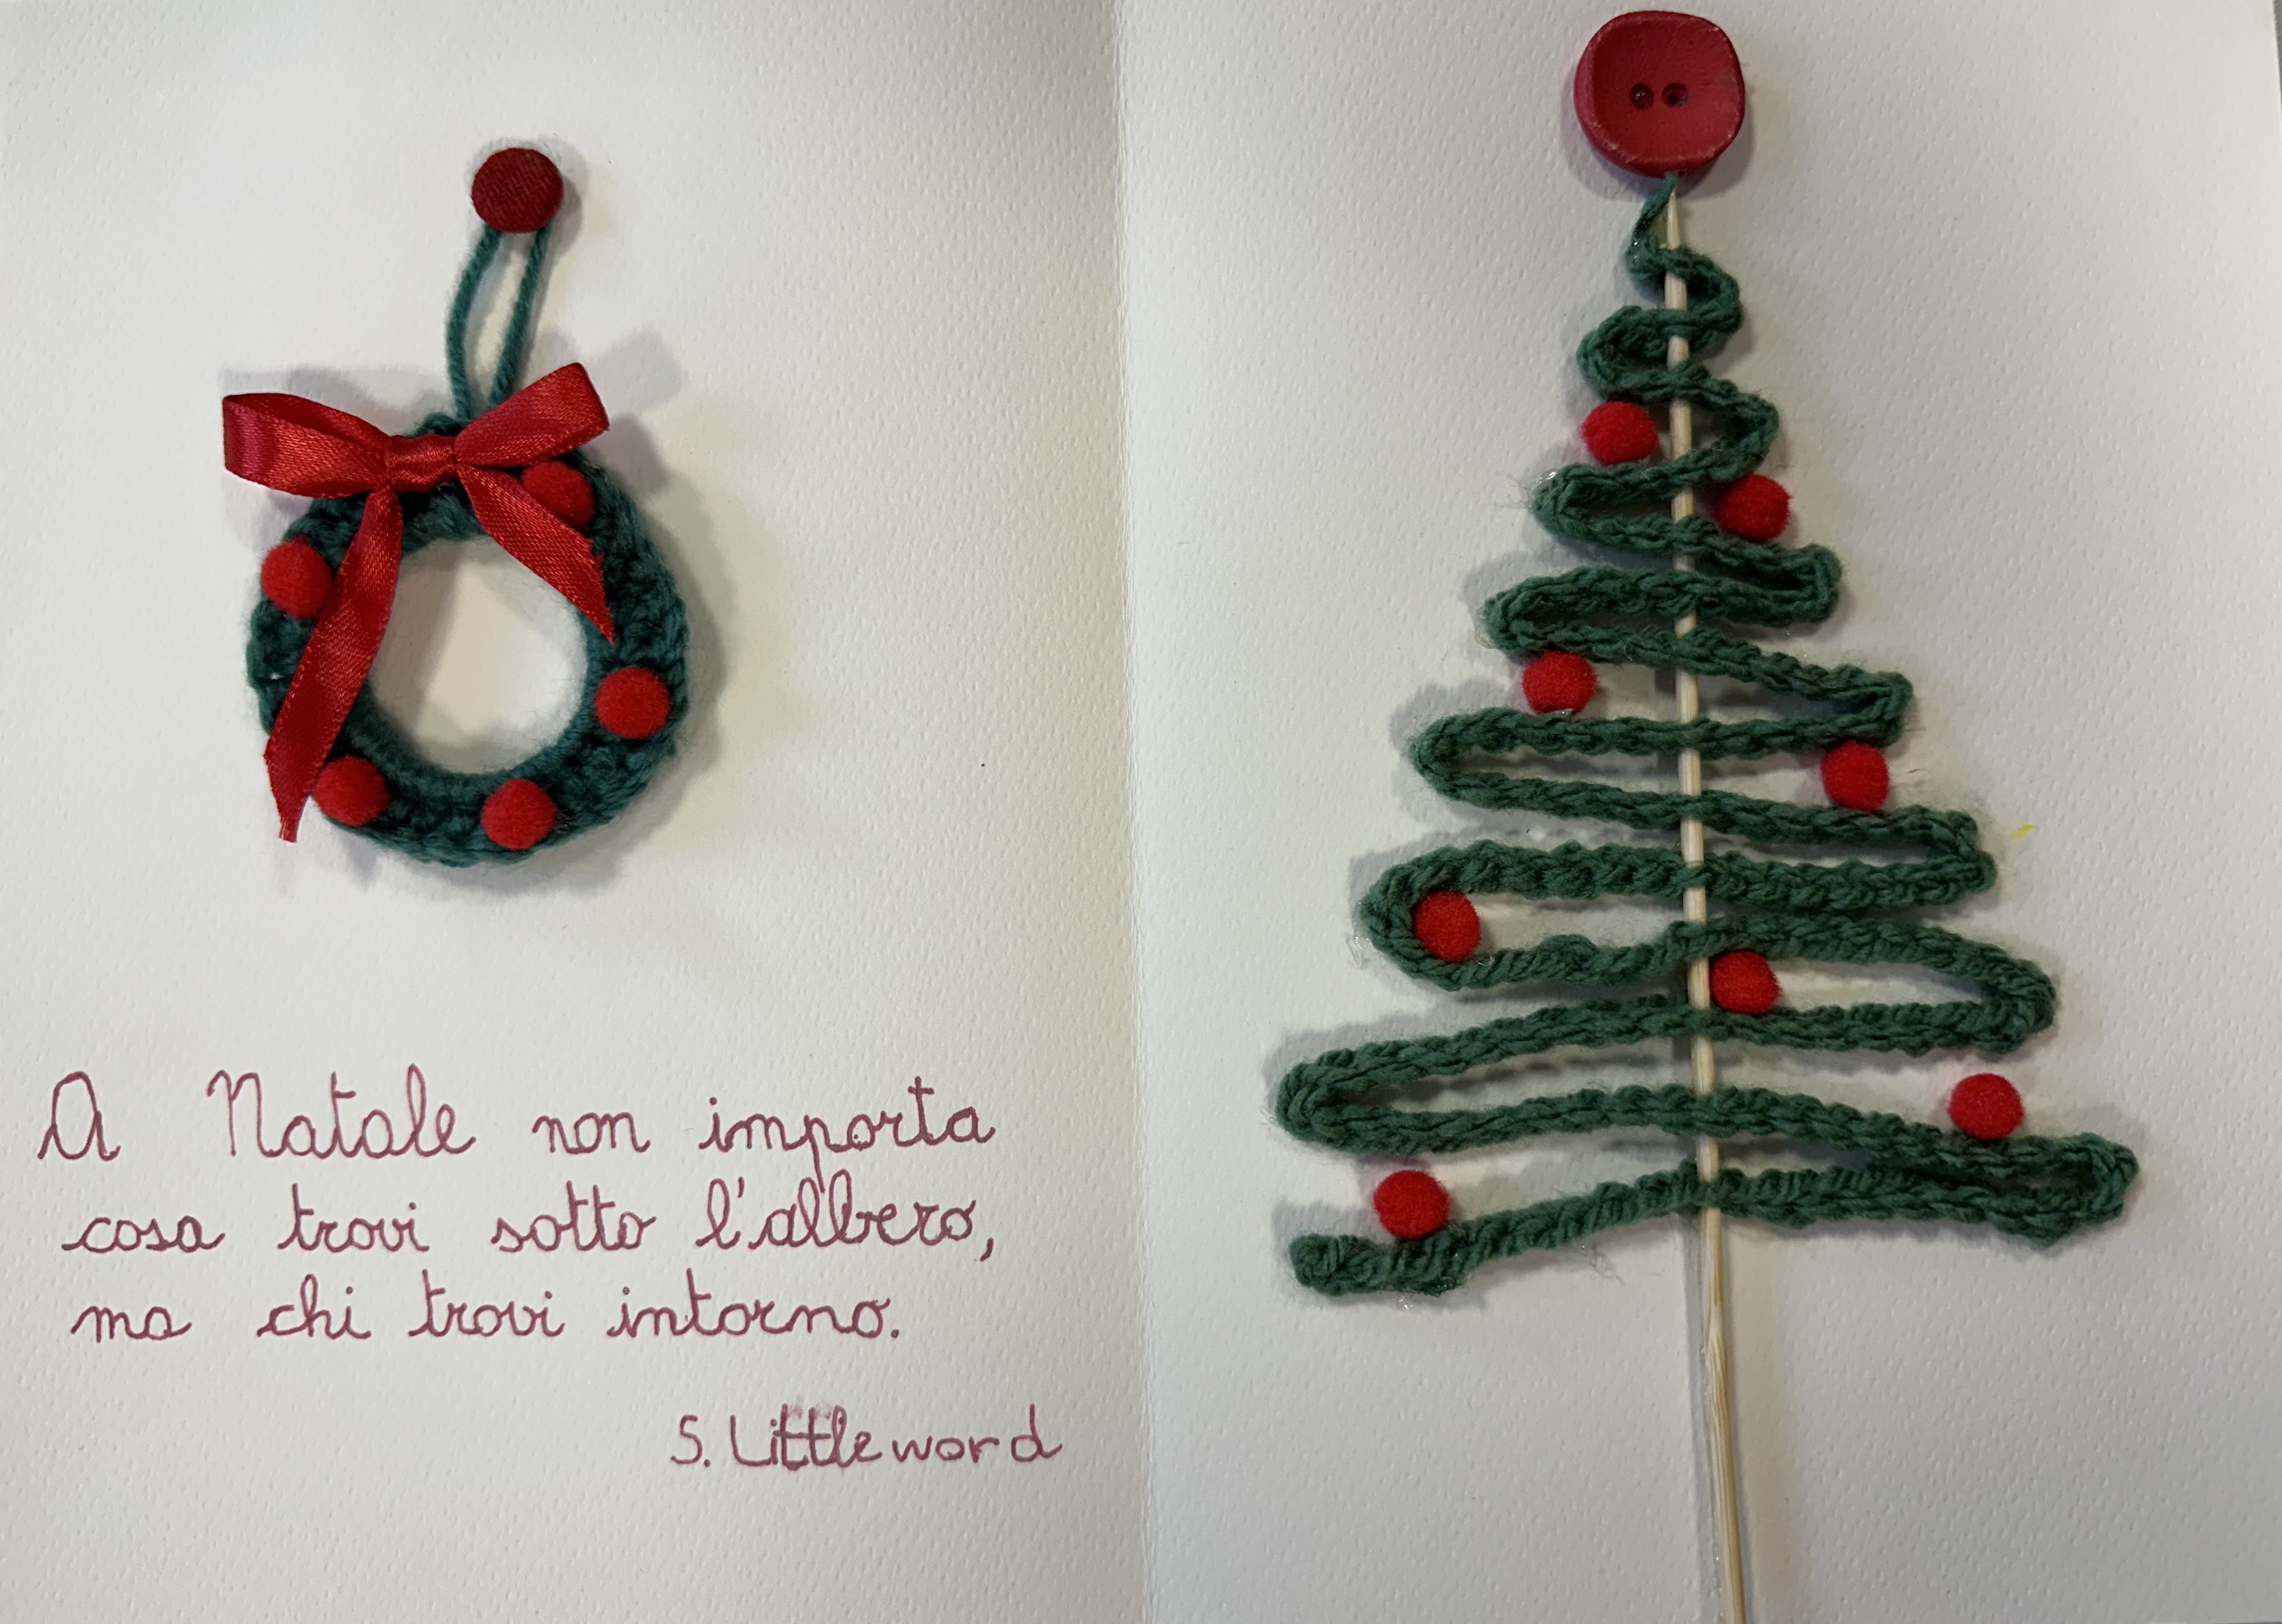 A Natale non importa
cosa trovi sotto l'albero,
ma chi trovi intorno.
S. Littleword